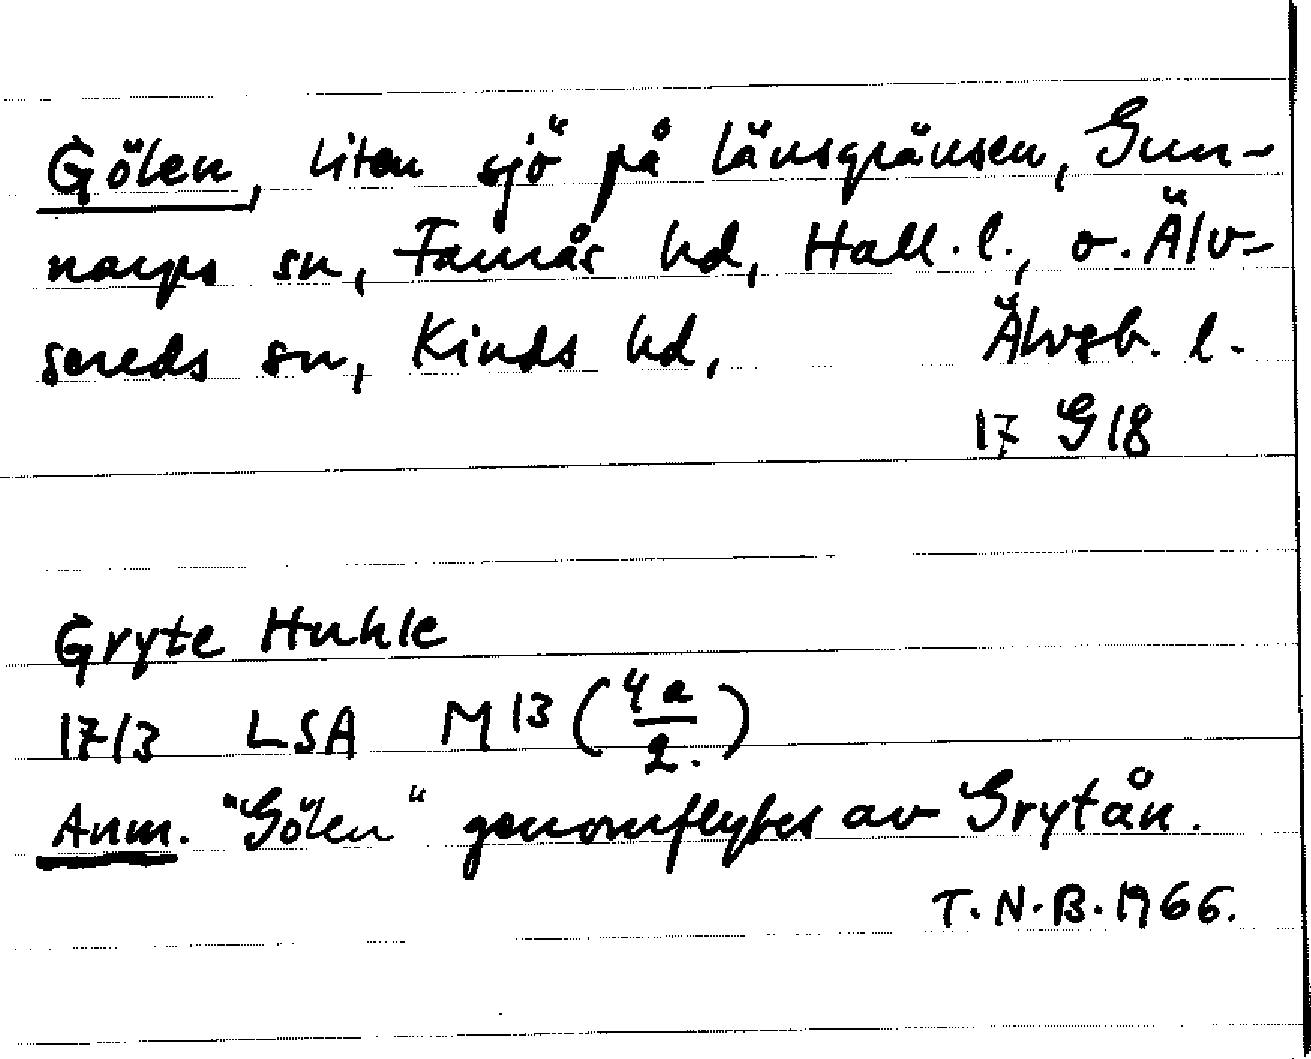 Gölen, liten sjö på länsgränsen, Gun-
narps sn, Faurås hd, Hall. l., o. Älv-
sereds sn, Kinds hd, Älvsb. l.
17 G 18
Gryte Huhle
1713 LSA M 13 (4a/2.)
Anm. "Gölen" genomflytes av Grytån.
T.N.B. 1966.